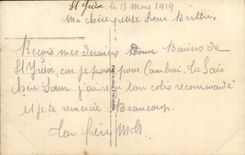 St Yrieix le 15 Mars 1919
Ma chère petite Sœur Berthe
Recois mes derniers Bons Baisers de
St Yrieix, car je pars pour Cambrai. Je Sais
chère Sœur j'ai reçu ton colis recommandé
et je te remercie Beaucoup.
Ton frère